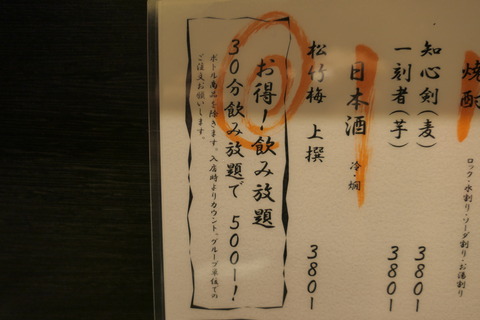 焼酎
ロック・水割り・ソーダ割り・お湯割り
知心剣(麦) 380I
一刻者(芋) 380I
日本酒 冷・燗
松竹梅 上撰 380I
お得!飲み放題
30分飲み放題で 500ー!
ボトル商品を除きます。入店時よりカウント。グループ単位での
ご注文お願いします。